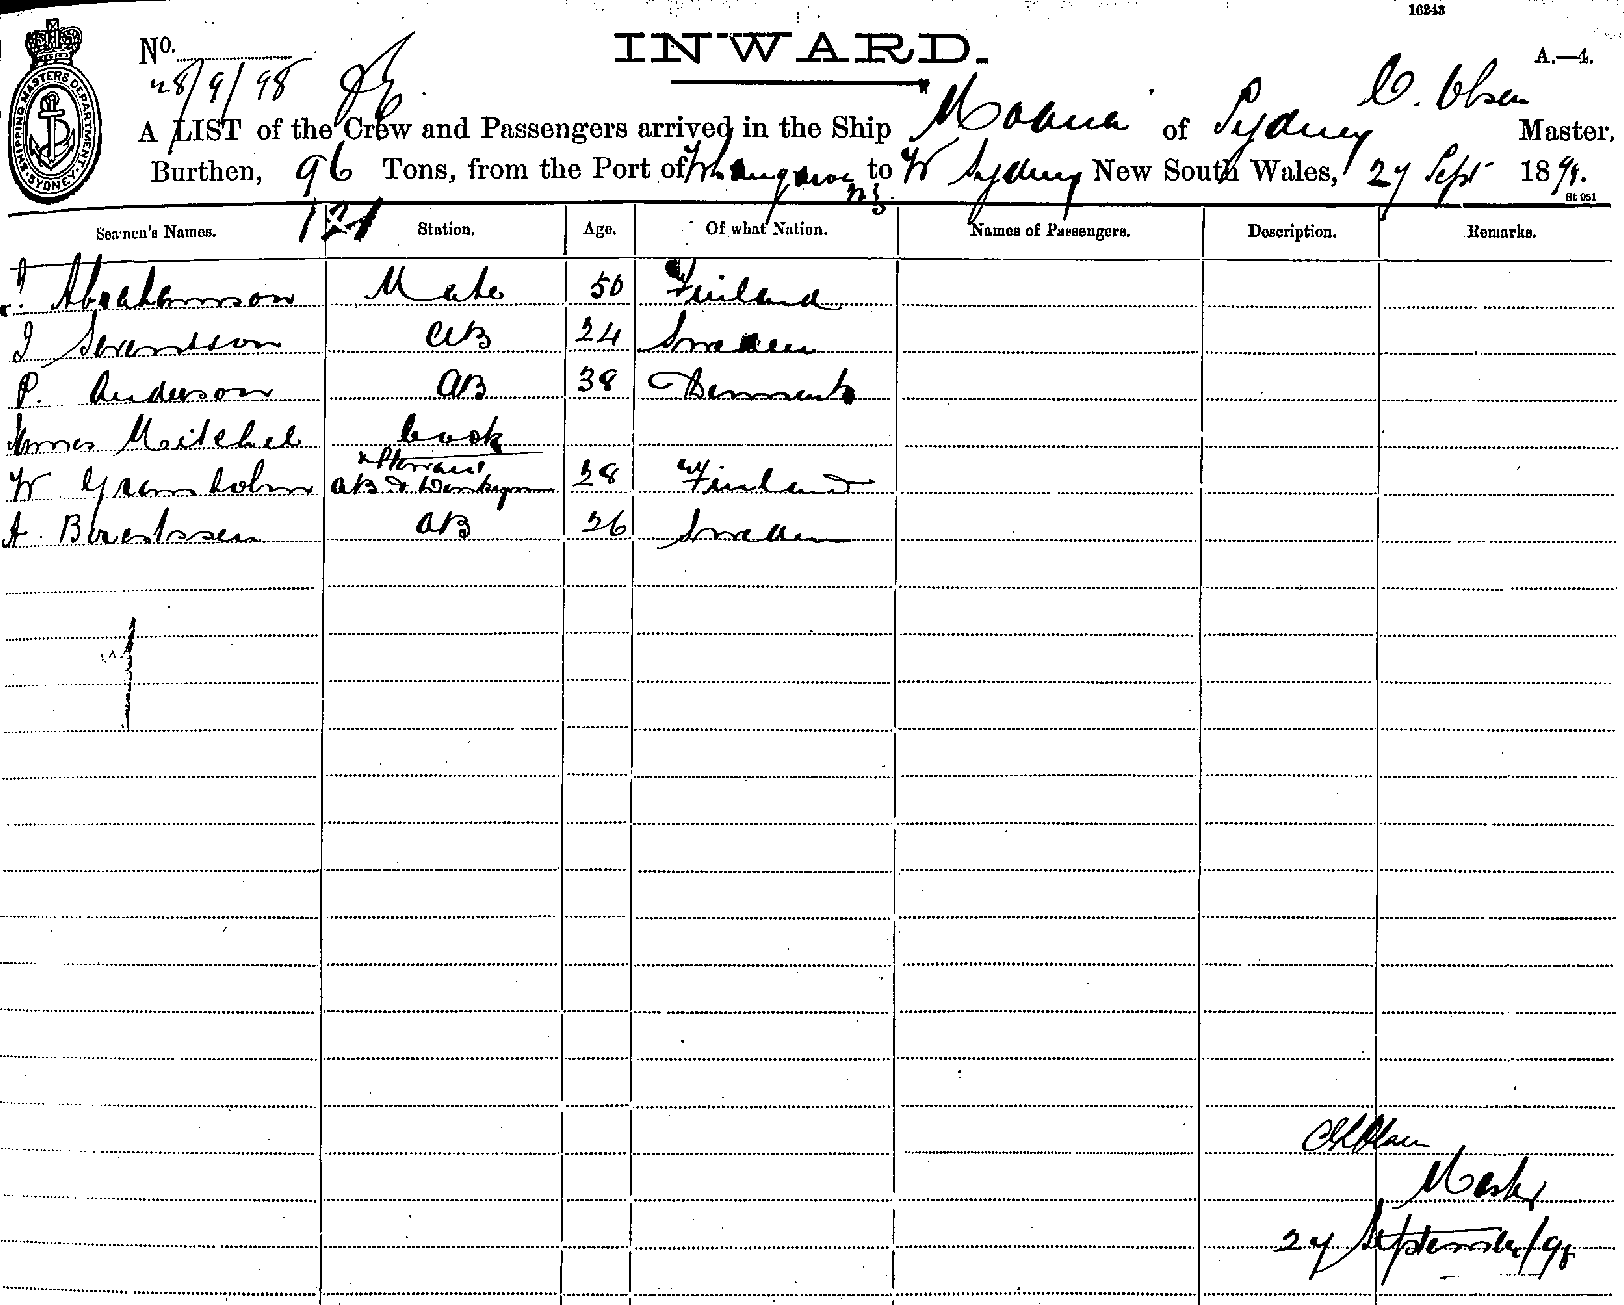 16243
INWARD.
A.—4.
No.
28/9/98
C. Olsen
A LIST of the Crew and Passengers arrived in the Ship Moana of Sydney Master,
Burthen, 96 Tons, from the Port of Whangaroa NZ to Sydney New South Wales, 27 Sept 1898.
SHIPPING MASTERS DEPARTMENT. SYDNEY.
121
St 951
Seamen's Names. Station. Age. Of what Nation. Names of Passengers. Description. Remarks.
Abrahamson Mate 50 Finland
J Swendson AB 24 Sweden
P. Anderson AB 38 Denmark
James Mitchel Cook
& Steward
W Granholm AB & Donkeyman 28 Finland
A. Berntssen AB 26 Sweden
Olsen
Master
27 September/98